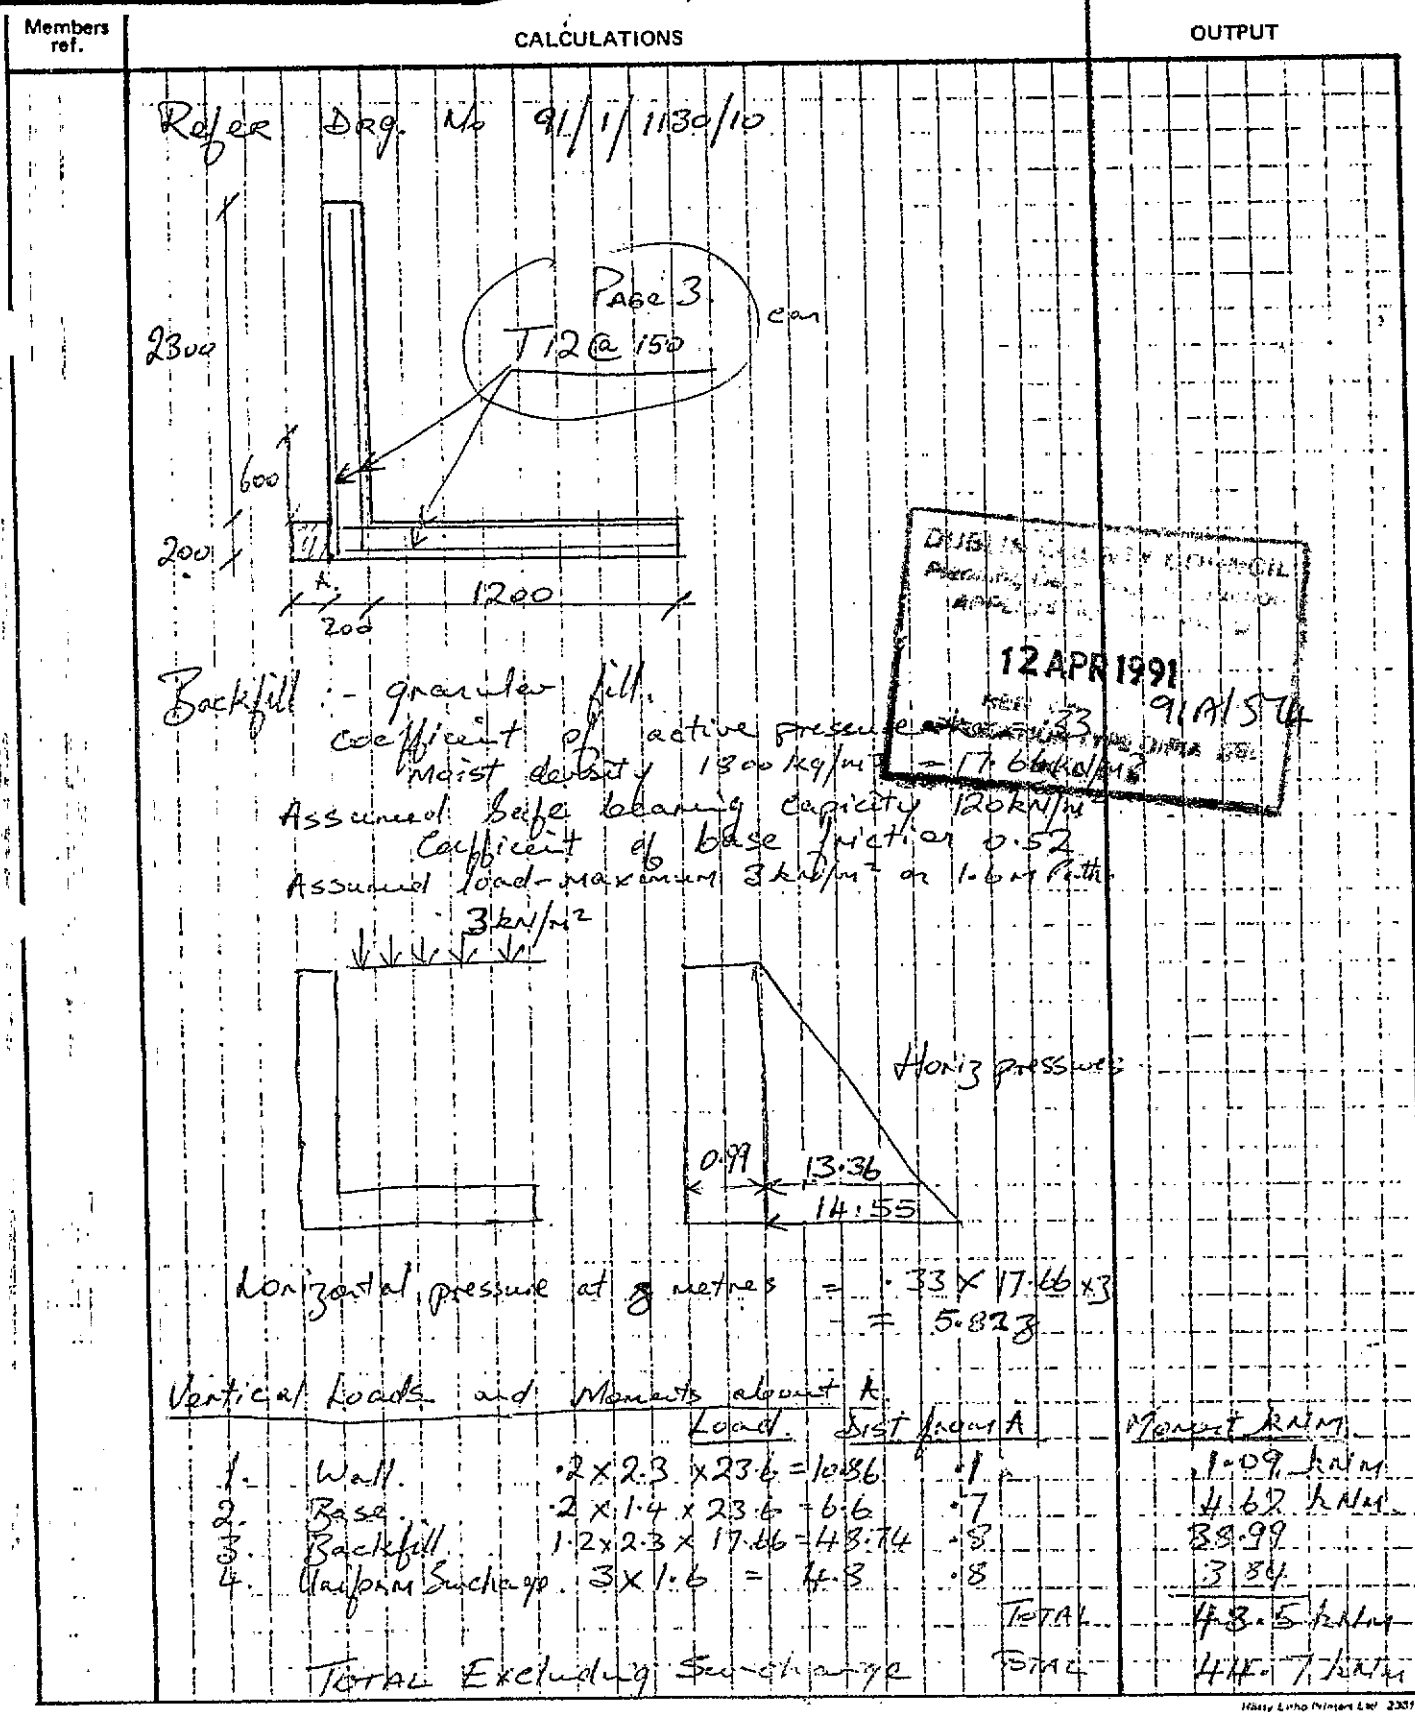 Members ref.
CALCULATIONS
OUTPUT
Refer Drg. No 91/1/1130/10
PAGE 3
T12 @ 150
ear
2300
600
200
A.
1200
200
DUBLIN COUNTY COUNCIL
12 APR 1991
91A/574
Backfill :- granular fill.
coefficient of active pressure = .33
Moist density 1800 kg/m3 = 17.66 kN/m3
Assumed Safe bearing capicity 120kN/m2
Cofficient of base friction 0.52
Assumed load-maximum 3kN/m2 on 1.6m Path.
3kN/m2
Horiz pressures
0.99
13.36
14.55
horizontal pressure at z metres = .33 x 17.66 x z
= 5.82z
Vertical Loads and Moments about A.
Load. Dist from A Moment kNM
1. Wall. .2 x 2.3 x 23.6 = 10.86 .1 1.09 kNM
2. Base. .2 x 1.4 x 23.6 = 6.6 .7 4.62 kNM.
3. Backfill. 1.2 x 2.3 x 17.66 = 48.74 .8 38.99
4. Uniform Surcharge. 3 x 1.6 = 4.8 .8 3.84
TOTAL 48.5 kNM
TOTAL Excluding Surcharge TOTAL 44.7 kNM